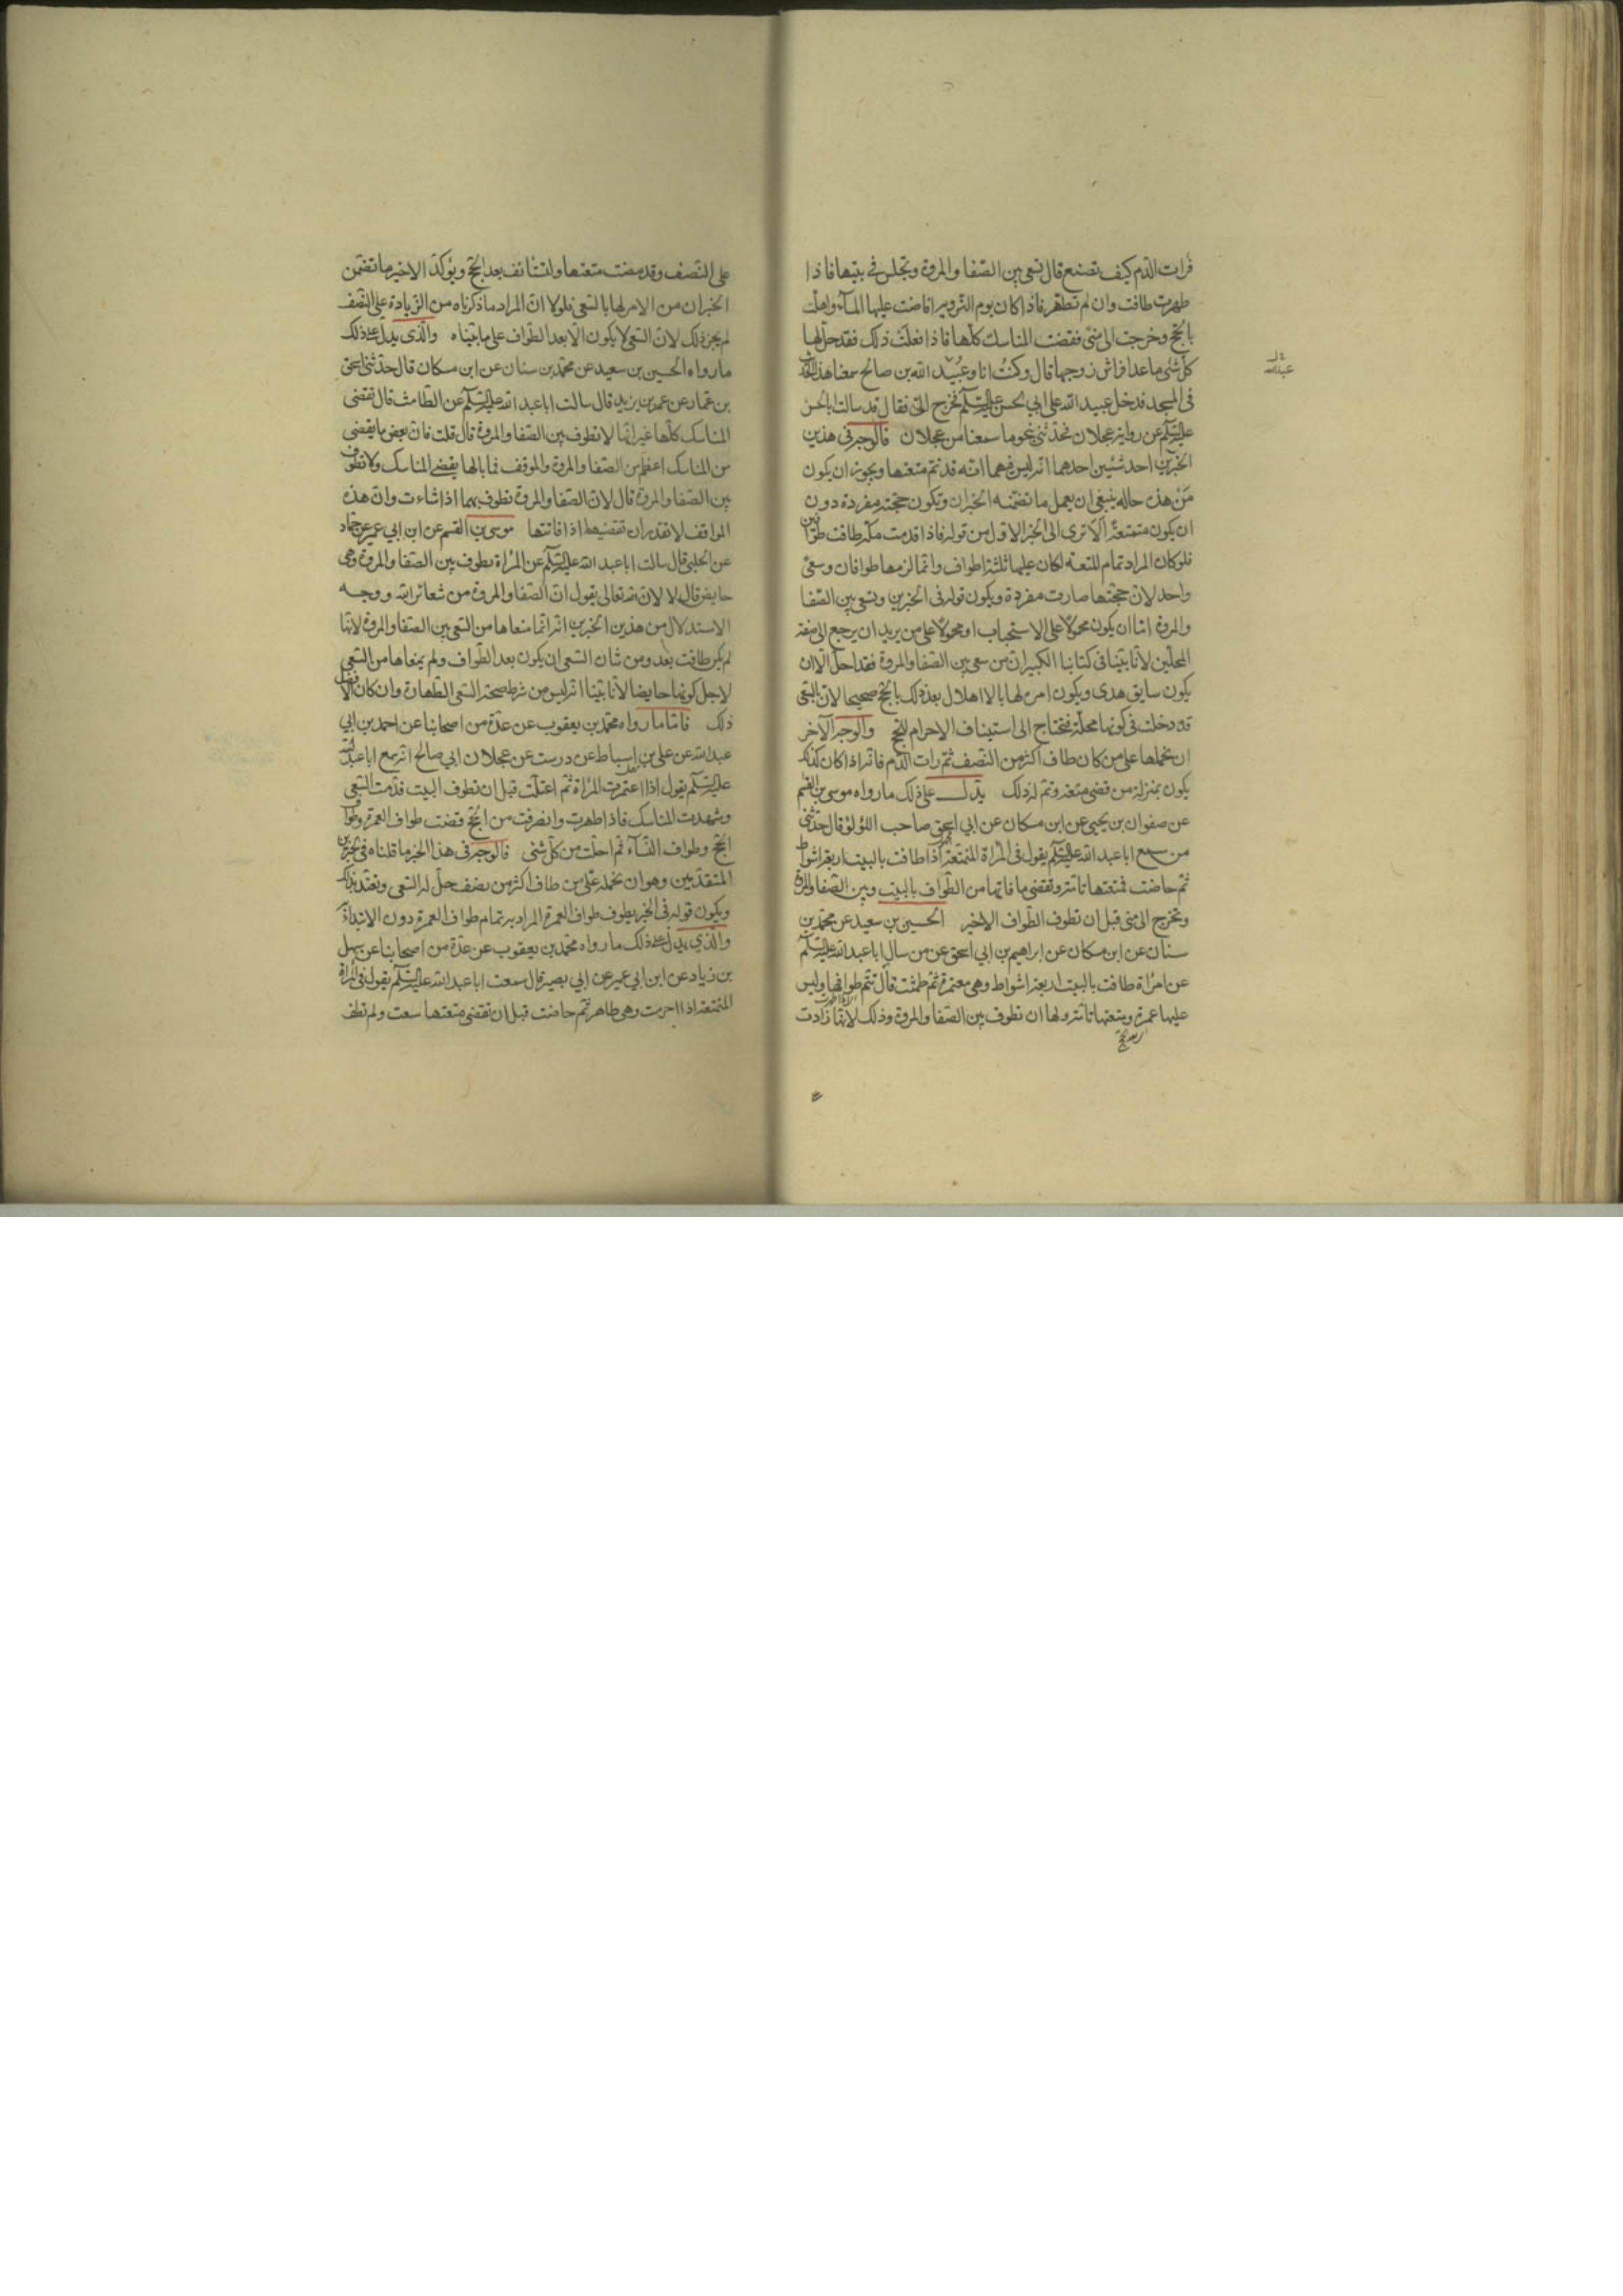 فرات الدم كيف تصنع قال تسعى بين الصفا والمروة وتجلس في بيتها فاذا
طهرت طافت وان لم تطهر فاذا كان يوم التروية افاضت عليها الماء واهلت
بالحج وخرجت الى منى فقضت المناسك كلها فاذا فعلت ذلك فقد حل لها
كل شئ ما عدا فراش زوجها قال وكنت انا وعبيد الله بن صالح سمعنا هذا الحديث
في المسجد فدخل عبيد الله على ابي الحسن عليه السلم فخرج الى فقال قد سالت ابا الحسن
عليه السلم عن رواية عجلان فحدثني بنحو ما سمعنا من عجلان فالوجه في هذين
الخبرين احد شيئين احدهما انه ليس فيهما انه قد تم متعتها ويجوز ان يكون
من هذه حاله ينبغي ان يعمل ما تضمنه الخبران وتكون حجته مفردة دون
ان يكون متمتعة الا ترى الى الخبر الاول من قوله فاذا قدمت مكة طافت طوافين
فلو كان المراد تمام المتعة لكان عليها ثلثة اطواف وانما لزمها طوافان وسعى
واحد لان حجتها صارت مفردة ويكون قوله في الخبرين وتسعى بين الصفا
والمروة اما ان يكون محمولا على الاستحباب او محمولا على من يريد ان يرجع الى صفة
المحلين لانا بينا في كتابنا الكبير ان من سعى بين الصفا والمروة فقد احل الا ان
يكون سايق هدى ويكون امره لها بالاهلال بعد ذلك بالحج صحيحا لان بالسعى
قد دخلت في كونها محلة فتحتاج الى استيناف الاحرام للحج والوجه الآخر
ان نحملها على من كان طاف اكثر من النصف ثم رات الدم فانه اذا كان كذلك
يكون بمنزلة من قضى متعته وتم له ذلك يدل على ذلك ما رواه موسى بن القسم
عن صفوان بن يحيى عن ابن مسكان عن ابي اسحق صاحب اللؤلؤ قال حدثني
من سمع ابا عبد الله عليه السلم يقول في المراة المتمتعة اذا طافت بالبيت اربعة اشواط
ثم حاضت فمتعتها تامة وتقضى ما فاتها من الطواف بالبيت وبين الصفا والمروة
وتخرج الى منى قبل ان تطوف الطواف الاخير الحسين بن سعيد عن محمد بن
سنان عن ابن مسكان عن ابراهيم بن ابي اسحق عن من سال ابا عبد الله عليه السلم
عن امراة طافت بالبيت اربعة اشواط وهي معتمرة ثم طمثت قال تتم طوافها وليس
عليها عمرة ومتعتها تامة ولها ان تطوف بين الصفا والمروة وذلك لانها زادت
عبدالله
على النصف وقد مضت متعتها ولتستانف بعد الحج ويؤكد الاخير ما تضمن
الخبران من الامر لها بالسعى فلولا ان المراد ما ذكرناه من الزيادة على النصف
لم يجز ذلك لان السعى لا يكون الا بعد الطواف على ما بيناه والذي يدل على ذلك
ما رواه الحسين بن سعيد عن محمد بن سنان عن ابن مسكان قال حدثني اسحق
بن عمار عن عمر بن يزيد قال سالت ابا عبد الله عليه السلم عن الطامث قال تقضى
المناسك كلها غير انها لا تطوف بين الصفا والمروة قال قلت فان بعض ما يقضى
من المناسك اعظم من الصفا والمروة والموقف فما بالها يقضى المناسك ولا تطوف
بين الصفا والمروة قال لان الصفا والمروة تطوف بهما اذا شاءت وان هذه
المواقف لا تقدر ان تقضيها اذا فاتتها موسى بن القسم عن ابن ابي عمير عن حماد
عن الحلبي قال سالت ابا عبد الله عليه السلم عن المراة تطوف بين الصفا والمروة وهي
حايض قال لا لان الله تعالى يقول ان الصفا والمروة من شعائر الله ووجه
الاستدلال من هذين الخبرين انه انما منعاها من السعى بين الصفا والمروة لانها
لم يكن طافت بعد ومن شان السعى ان يكون بعد الطواف ولم يمنعاها من السعى
لاجل كونها حايضا لانا بينا انه ليس من شرط صحة السعى الطهارة وان كان الافضل
ذلك فاما ما رواه محمد بن يعقوب عن عدة من اصحابنا عن احمد بن ابي
عبد الله عن على بن اسباط عن درست عن عجلان ابي صالح انه سمع ابا عبد الله
عليه السلم يقول اذا اعتمرت المراة ثم اعتلت قبل ان تطوف البيت قدمت السعى
وشهدت المناسك فاذا طهرت وانصرفت من الحج قضت طواف العمرة وطواف
الحج وطواف النساء ثم احلت من كل شئ فالوجه في هذا الخبر ما قلناه في الخبرين
المتقدمين وهو ان نحمله على من طاف اكثر من نصف حل له السعى وتعتد بذلك
ويكون قوله في الخبر يطوف طواف العمرة المراد به تمام طواف العمرة دون الابتداء
والذي يدل على ذلك ما رواه محمد بن يعقوب عن عدة من اصحابنا عن سهل
بن زياد عن ابن ابي عمير عن ابي بصير قال سمعت ابا عبد الله عليه السلم يقول في المراة
المتمتعة اذا احرمت وهي طاهر ثم حاضت قبل ان تقضى متعتها سعت ولم تطف